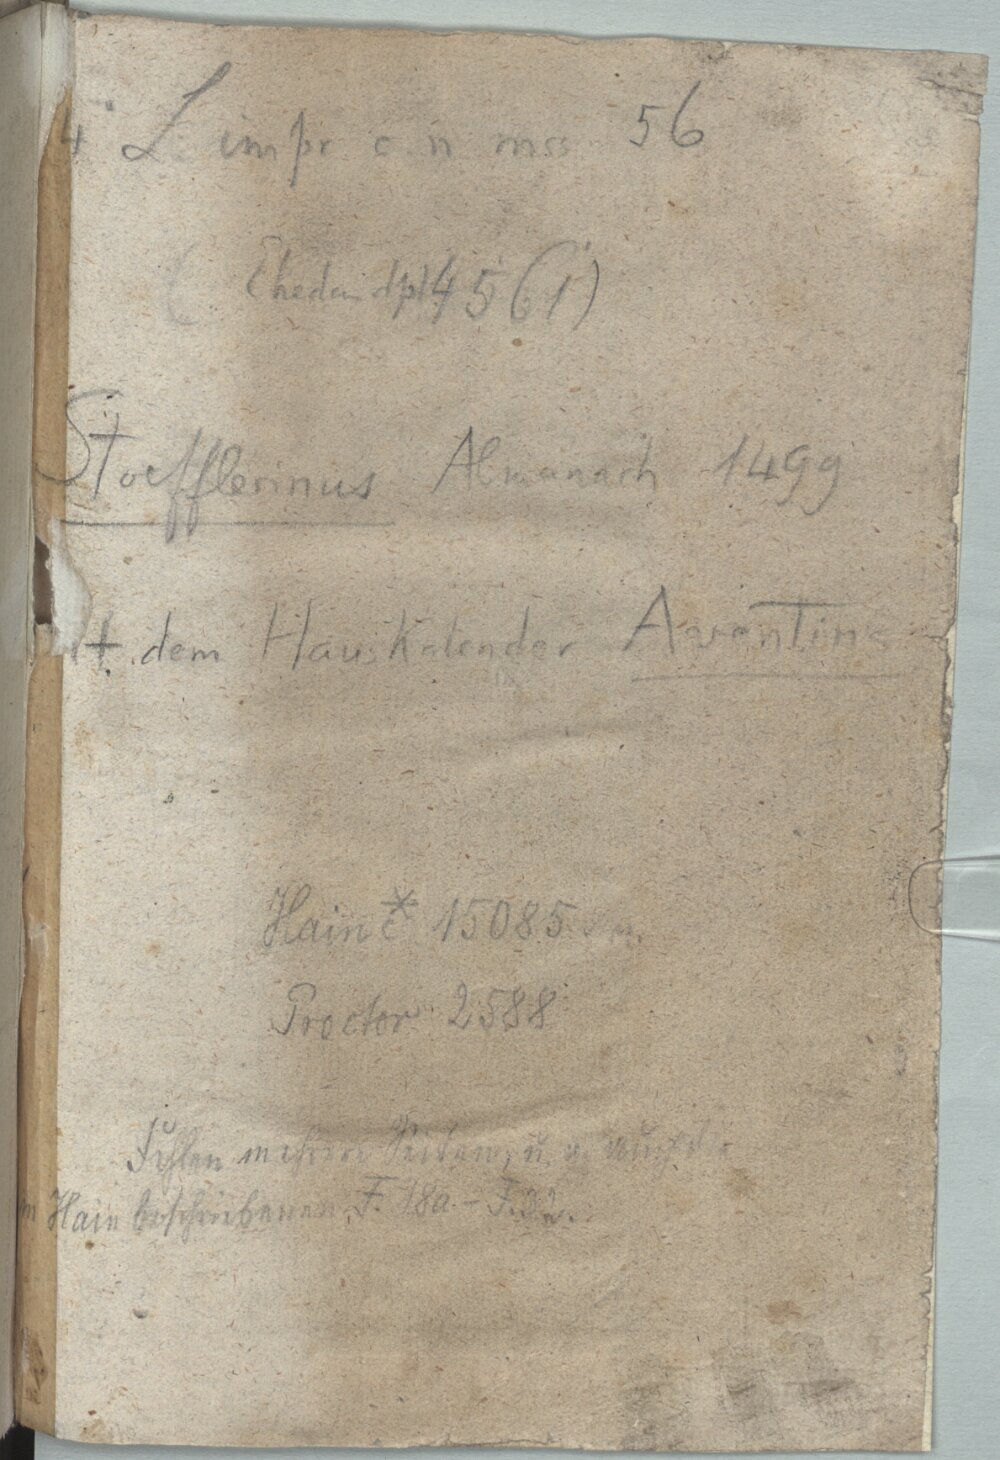 4 L. impr. c. n. mss 56
(Ehedem dpl 45 (1)
Stoefflerinus Almanach 1499
it dem Hauskalender Aventins
Hain * 15085
Proctor 2588
Fehlen mehrere Seiten, u. a. auch die
Hain beschriebenen F. 18a - F. 32.